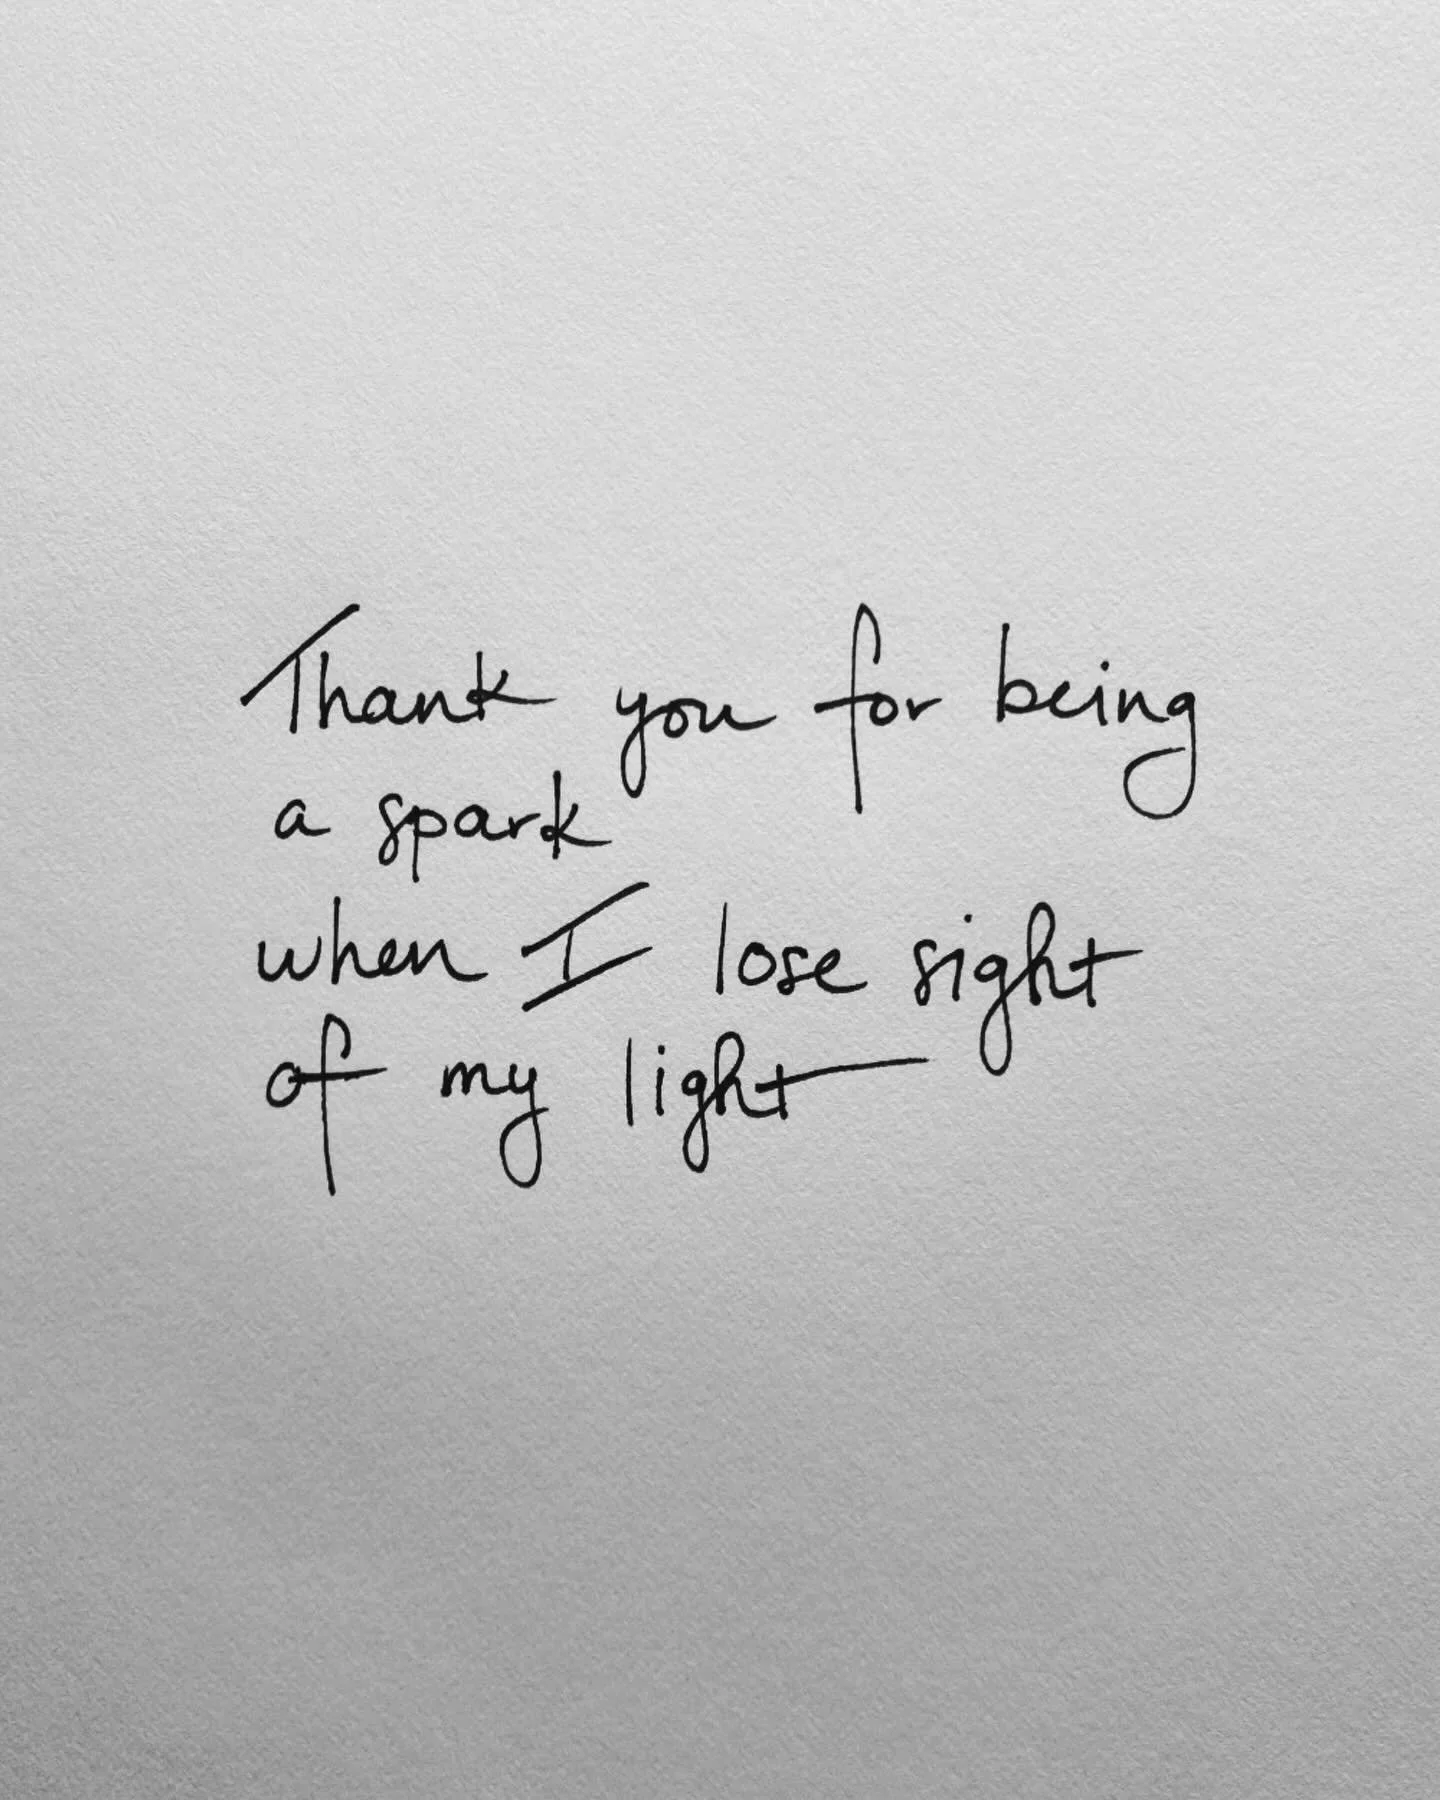 Thank you for being
a spark
when I lose sight
of my light